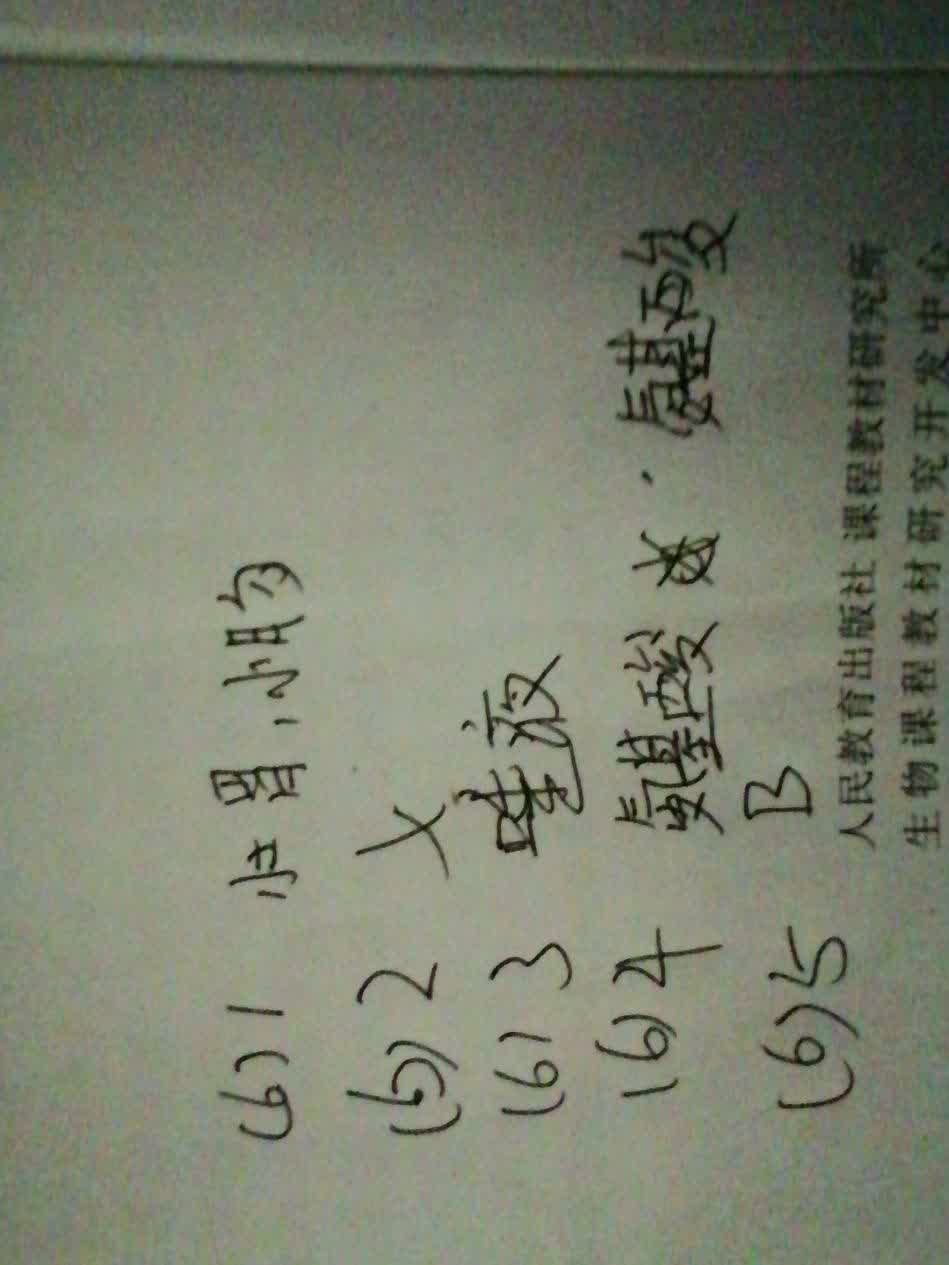 (6)1 胃,小肠
(6)2 X
(6)3 唾液
(6)4 氨基酸 . 氨基酸
(6)5 B
人民教育出版社 课程教材研究所
生物课程教材研究开发中心